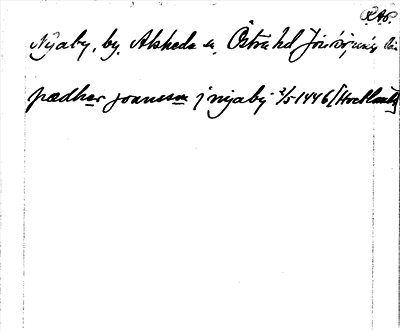 RAp.
Nyaby, by. Alsheda sn, Östra hd Jönköpings län
pædher joansson j nyaby 2/5 1446 [Hvetlanda]